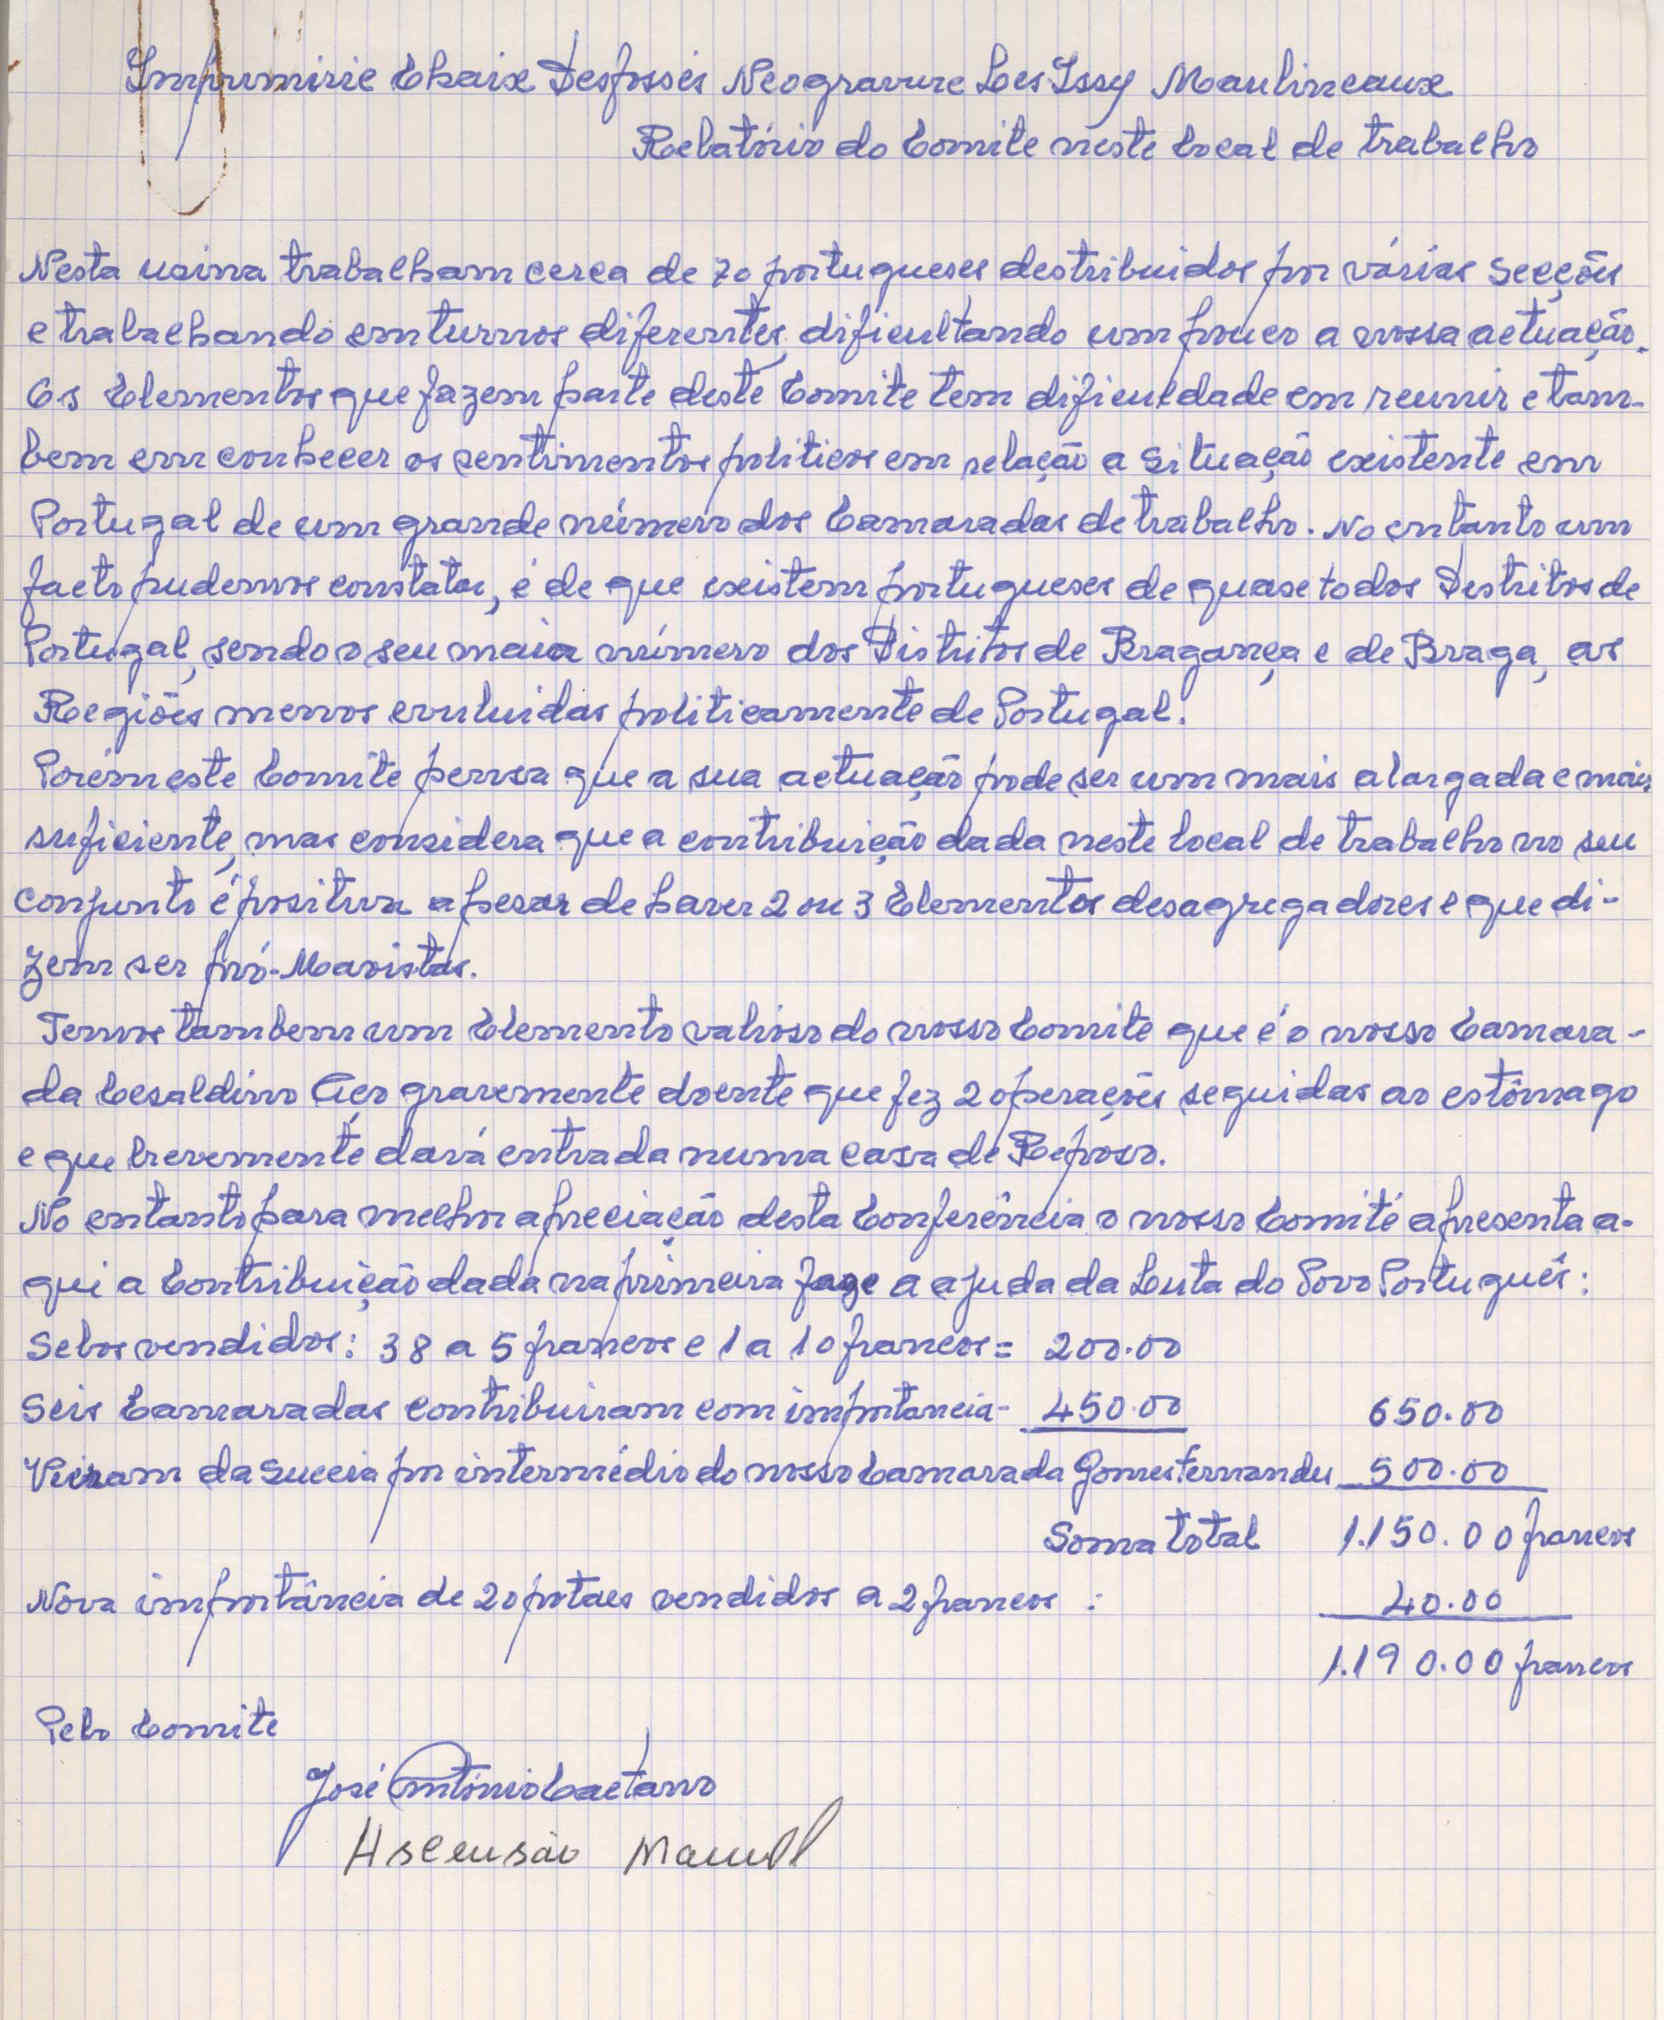 Imprimirie Chaix Desfossés Neogravure Les Issy Moulineaux
Relatório do Comite neste local de trabalho
Nesta usina trabalham cerca de 70 portugueses destribuidos por várias secções
e trabalhando em turnos diferentes, dificultando um pouco a nossa actuação.
Os Elementos que fazem parte deste Comite tem dificuldade em reunir e tam-
bem em conhecer os sentimentos politicos em relação a situação existente em
Portugal de um grande número dos Camaradas de trabalho. No entanto um
facto pudemos constatar, é de que existem portugueses de quase todos Destritos de
Portugal, sendo o seu maior número dos Distritos de Bragança e de Braga, as
Regiões menos evoluidas politicamente de Portugal.
Porém este Comite pensa que a sua actuação pode ser um mais alargada e mais
suficiente, mas considera que a contribuição dada neste local de trabalho no seu
conjunto é positiva apesar de haver 2 ou 3 Elementos desagregadores e que di-
zem ser pró-Maoistas.
Temos tambem um Elemento valioso do nosso Comite que é o nosso Camara-
da Cesaldino gravemente doente que fez 2 operações seguidas ao estômago
e que brevemente dará entrada numa casa de Repôso.
No entanto para melhor apreciação desta Conferência o nosso Comité apresenta a-
qui a Contribuição dada na primeira faze a ajuda da Luta do Povo Português:
Selos vendidos: 38 a 5 francos e 1 a 10 francos = 200.00
Seis Camaradas contribuiram com importancia- 450.00 650.00
Vieram da Suecia por intermédio do nosso Camarada Gomes Fernandes 500.00
Soma total 1.150.00 francos
Nova importância de 20 postaes vendidos a 2 francos : 40.00
1.190.00 francos
Pelo Comite
José António Caetano
Ascensão Manuel